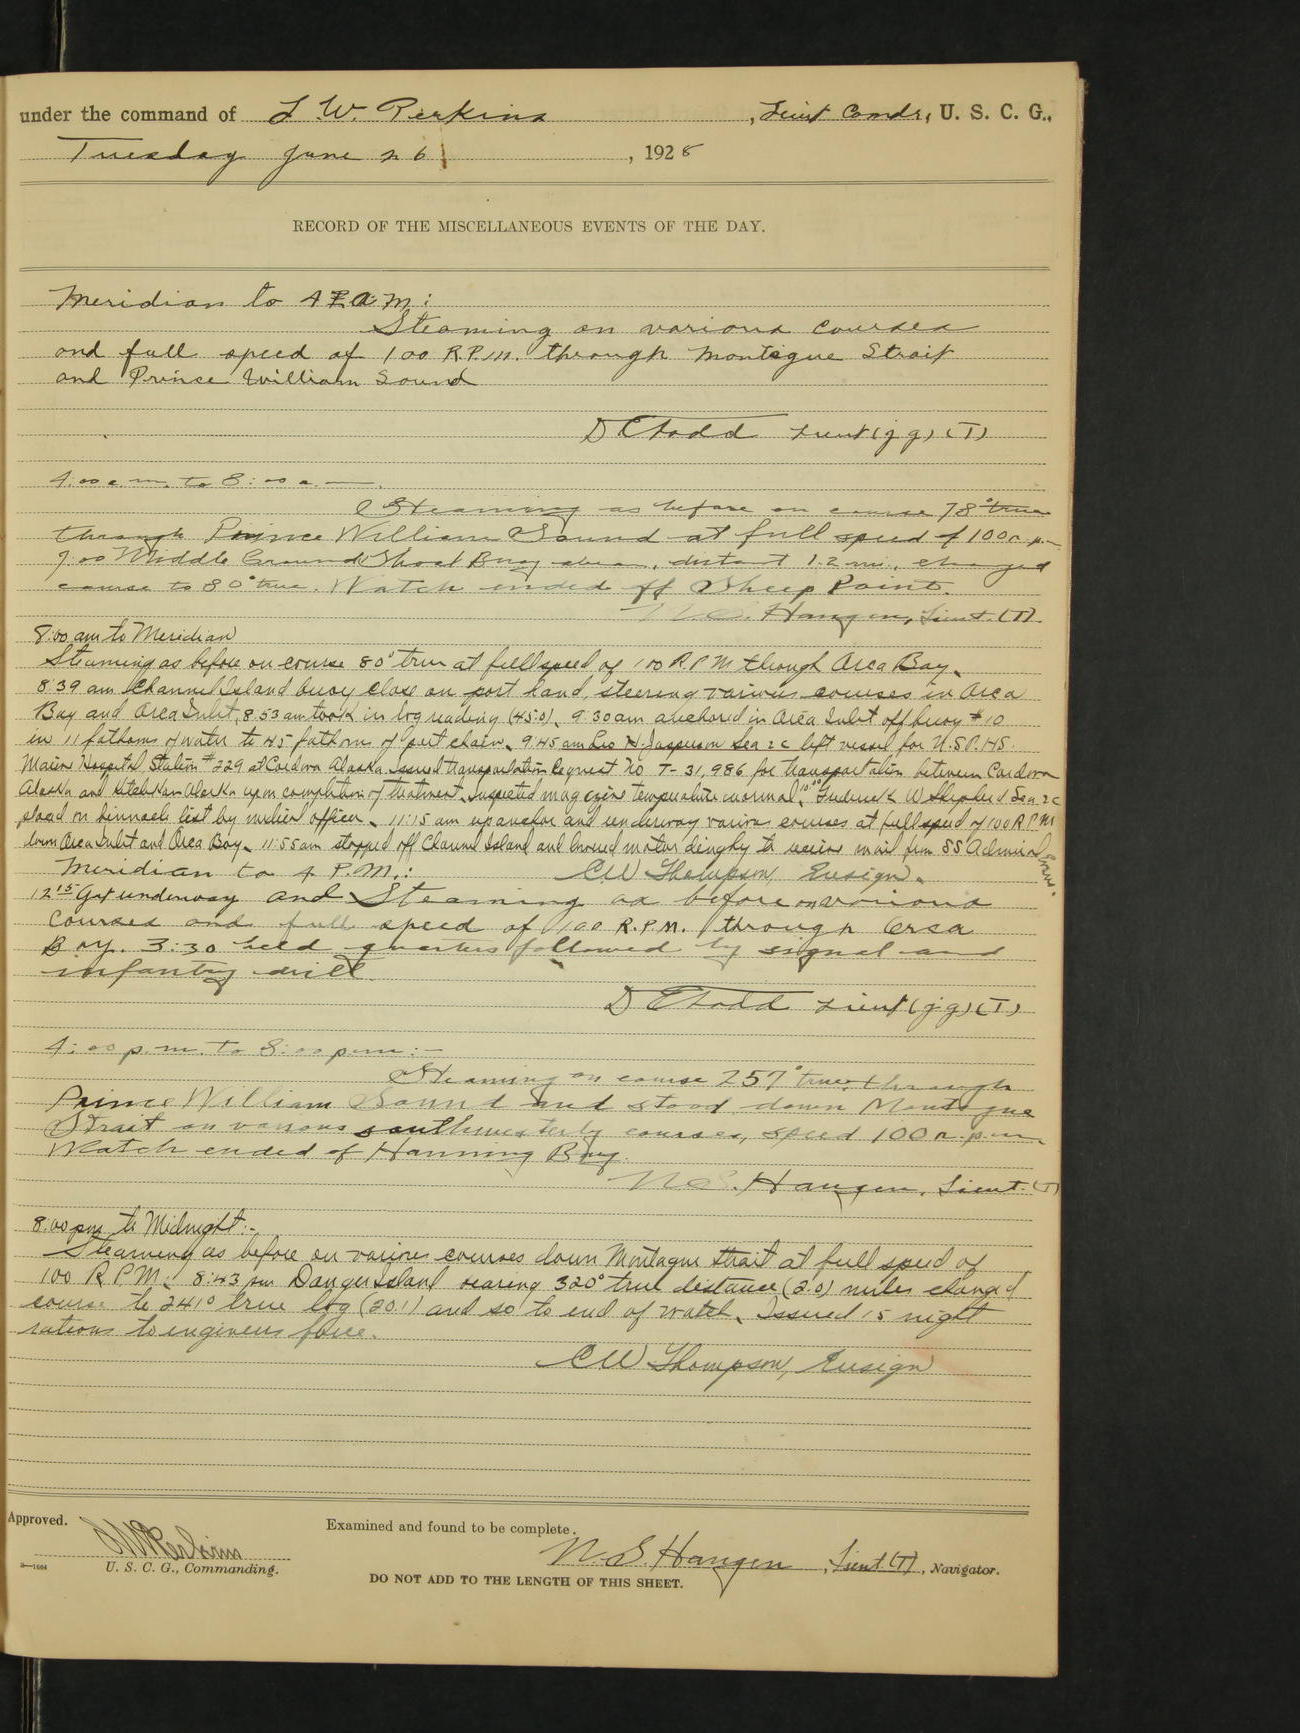 under the command of L W. Perkins, Lieut Comdr, U. S. C. G.,
Tuesday June 26, 1928
RECORD OF THE MISCELLANEOUS EVENTS OF THE DAY.
Meridian to 4 A.M:
Steaming on various courses
and full speed of 100 R.P.M. through Montague Strait
and Prince William Sound
D E Todd Lieut (j g) (T)
4:00 a.m. to 8:00 a.m.
Steaming as before on course 78° true
through Prince William Sound at full speed of 100 r.p.m.
7:00 Middle Ground Shoal Buoy abeam, distant 1.2 mi., changed
course to 80° true. Watch ended off Sheep Point.
N. S. Haugen, Lieut. (T).
8:00 am to Meridian
Steaming as before on course 80° true at full speed of 100 R.P.M through Orca Bay.
8:39 am Channel Island buoy close on port hand, steering various courses in Orca
Bay and Orca Inlet, 8:53 am took in log reading (45.0). 9:30 am anchored in Orca Inlet off buoy #10
in 11 fathoms of water to 45 fathoms of port chain. 9:45 am Leo H. Jasperson Sea 2c left vessel for U.S.P.H.S.
Marine Hospital Station #229 at Cordova Alaska. Issued Transportation Request No T-31,986 for transportation between Cordova
Alaska and Ketchikan Alaska upon completion of treatment. Inspected magazine temperature normal. 10:00 Frederick W Shepherd Sea 2c
placed on binnacle list by medical officer. 11:15 am up anchor and underway various courses at full speed of 100 R.P.M
down Orca Inlet and Orca Bay. 11:55 am stopped off Channel Island and lowered motor dinghy to receive mail from SS Admiral Evans.
C W Thompson, Ensign.
Meridian to 4 P.M.:
12 15 Got underway and Steaming as before on various
courses and full speed of 100 R.P.M. through Orca
Bay. 3:30 held quarters followed by signal and
infantry drill.
D E Todd Lieut (j g) (T)
4:00 p.m. to 8:00 p.m.:-
Steaming on course 257° true through
Prince William Sound and stood down Montague
Strait on various southwesterly courses, speed 100 r.p.m.
Watch ended of Hanning Bay.
N. S. Haugen, Lieut. (T)
8:00 pm to Midnight:-
Steaming as before on various courses down Montague Strait at full speed of
100 R P M. 8:43 pm Danger Island bearing 320° true distance (2.0) miles changed
course to 241° true log (20.1) and so to end of watch. Issued 15 night
rations to engineers force.
C W Thompson, Ensign
Approved.
L W Perkins
U. S. C. G., Commanding.
Examined and found to be complete.
N. S. Haugen, Lieut. (T), Navigator.
DO NOT ADD TO THE LENGTH OF THIS SHEET.